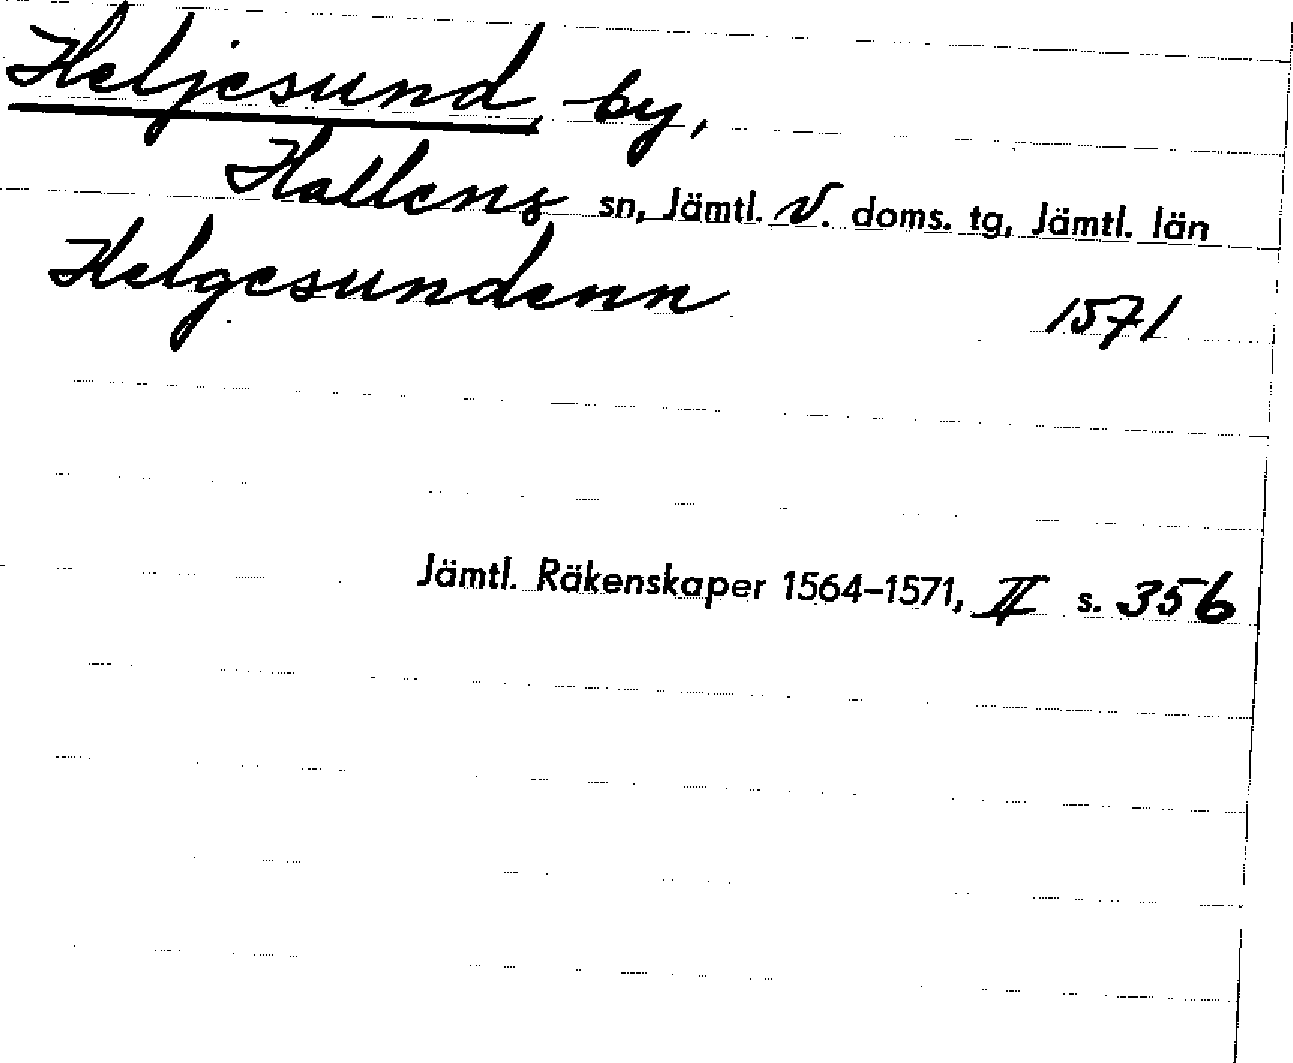 Heljesund, by,
Hallens sn, Jämtl. V. doms. tg, Jämtl. län
Helgesundenn 1571
Jämtl. Räkenskaper 1564–1571, II s. 356